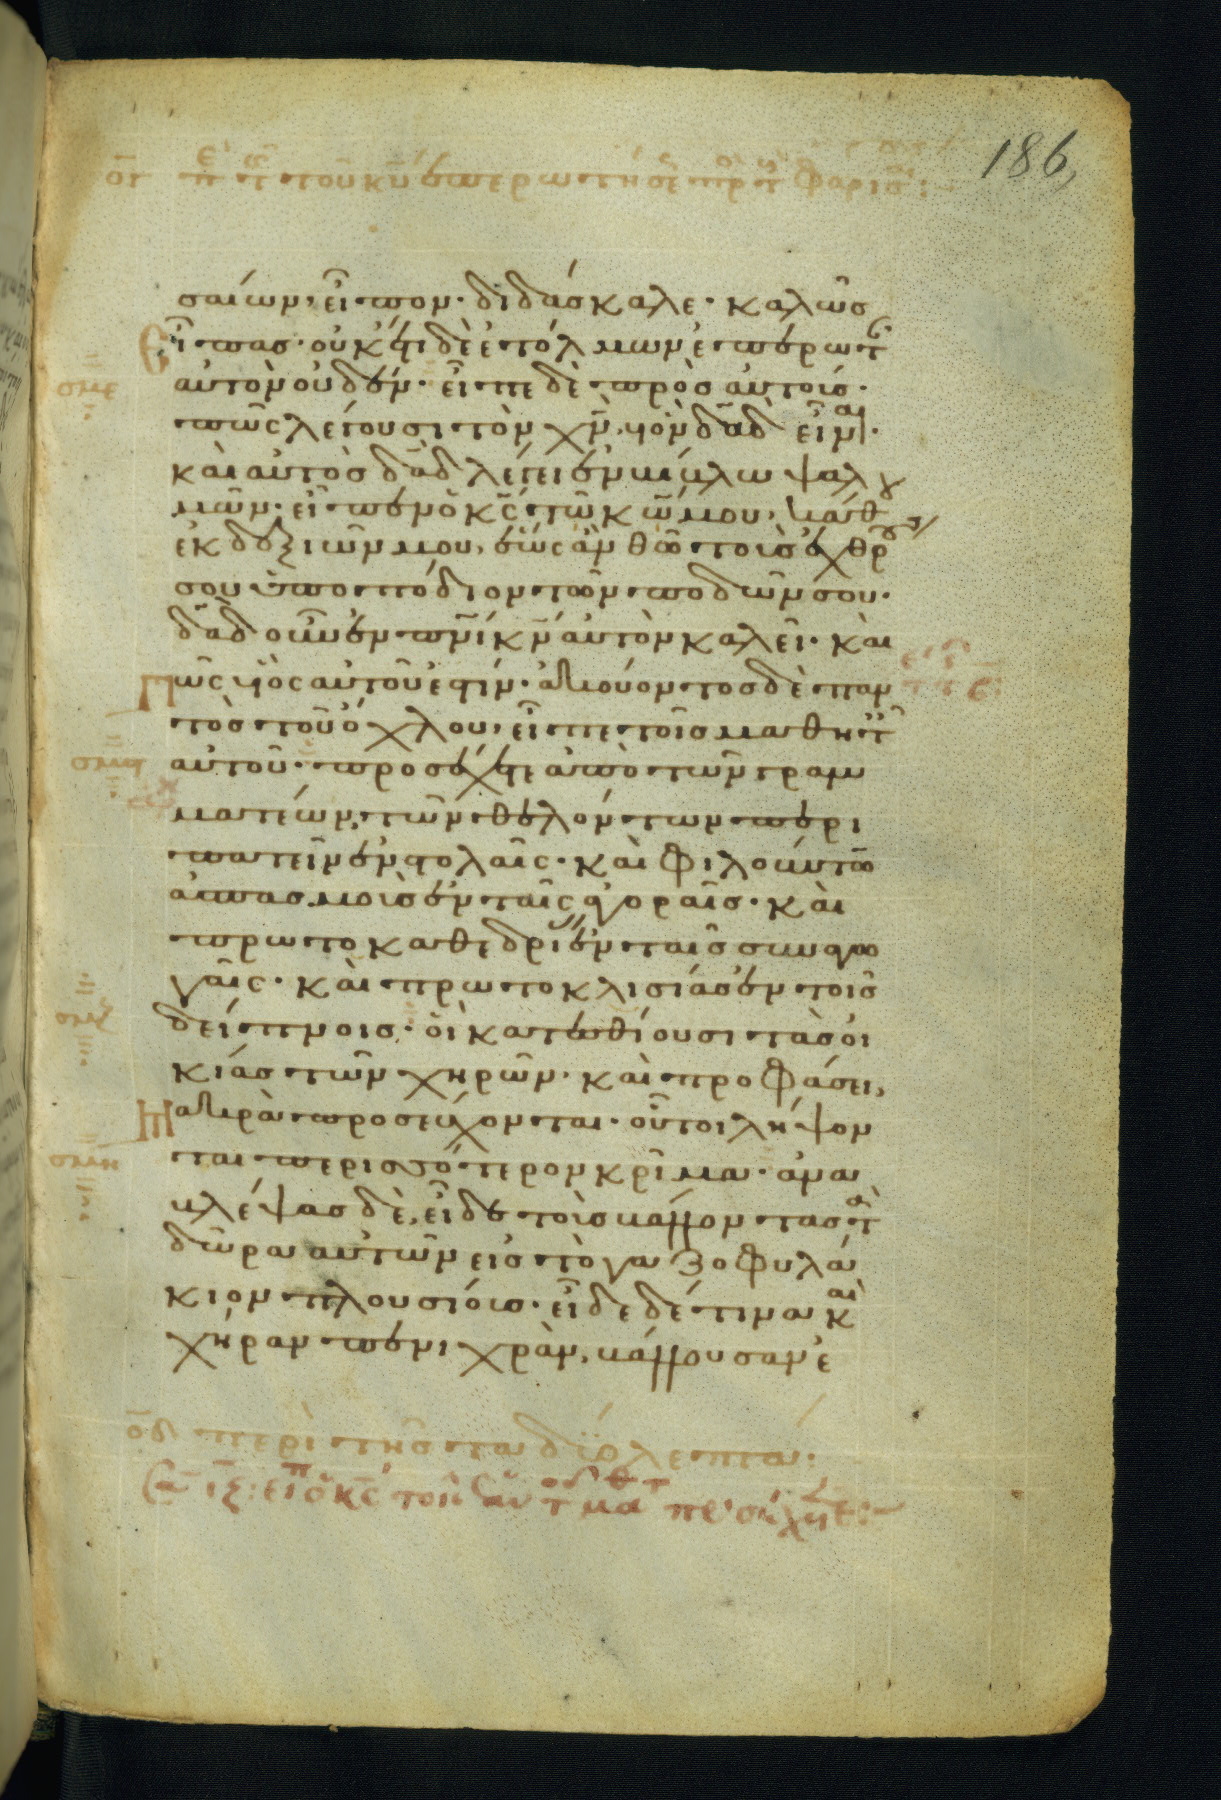 186
ογ περὶ τῆς τοῦ κυ ἐπερωτήσε πρ τ φαρισ :
σαίων, εἶπον· διδάσκαλε· καλῶς
εἶπας· οὐκέτι δὲ ἐτόλμων ἐπερωτ
σμε αὐτὸν οὐδέν· εἶπε δὲ πρὸς αὐτούς·
πῶς λέγουσι τὸν χν, υἱὸν δαδ εἶναι·
καὶ αὐτὸς δαδ λέγει ἐν βίβλω ψαλ
μῶν· εἶπεν ὁ κς τῶ κω μου, κάθου
ἐκ δεξιῶν μου, ἕως ἂν θῶ τοὺς ἐχθρούς
σου ὑποπόδιον τῶν ποδῶν σου·
δαδ οὖν ἐν πνι κν αὐτὸν καλεῖ· καὶ
πῶς υἱὸς αὐτοῦ ἐστίν· ἀκούοντος δὲ παν
τὸς τοῦ ὄχλου, εἶπε τοῖς μαθητ
σμ αὐτοῦ· προσέχετε ἀπὸ τῶν γραμ
ματέων, τῶν θελόντων περι
πατεῖν ἐν στολαῖς· καὶ φιλούντων
ἀσπασμοὺς ἐν ταῖς ἀγοραῖς· καὶ
πρωτοκαθεδρίας ἐν ταῖς συναγω
γαῖς· καὶ πρωτοκλισίας ἐν τοῖς
σμζ δείπνοις· οἱ κατεσθίουσι τὰς οἰ
κίας τῶν χηρῶν· καὶ προφάσει,
μακρὰ προσεύχονται· οὗτοι λήψον
σμη ται περισσότερον κρίμα· ἀνα
βλέψας δὲ, εἶδε τοὺς βάλλοντας τὰ
δῶρα αὐτῶν εἰς τὸ γαζοφυλά
κιον πλουσίους· εἶδε δέ τινα καὶ
χήραν πενιχρὰν, βάλλουσαν ἐ
οδ περὶ τῆς τὰ δύο λεπτά:
εἶπ ὁ κς τοῖς μαθ προσέχετε